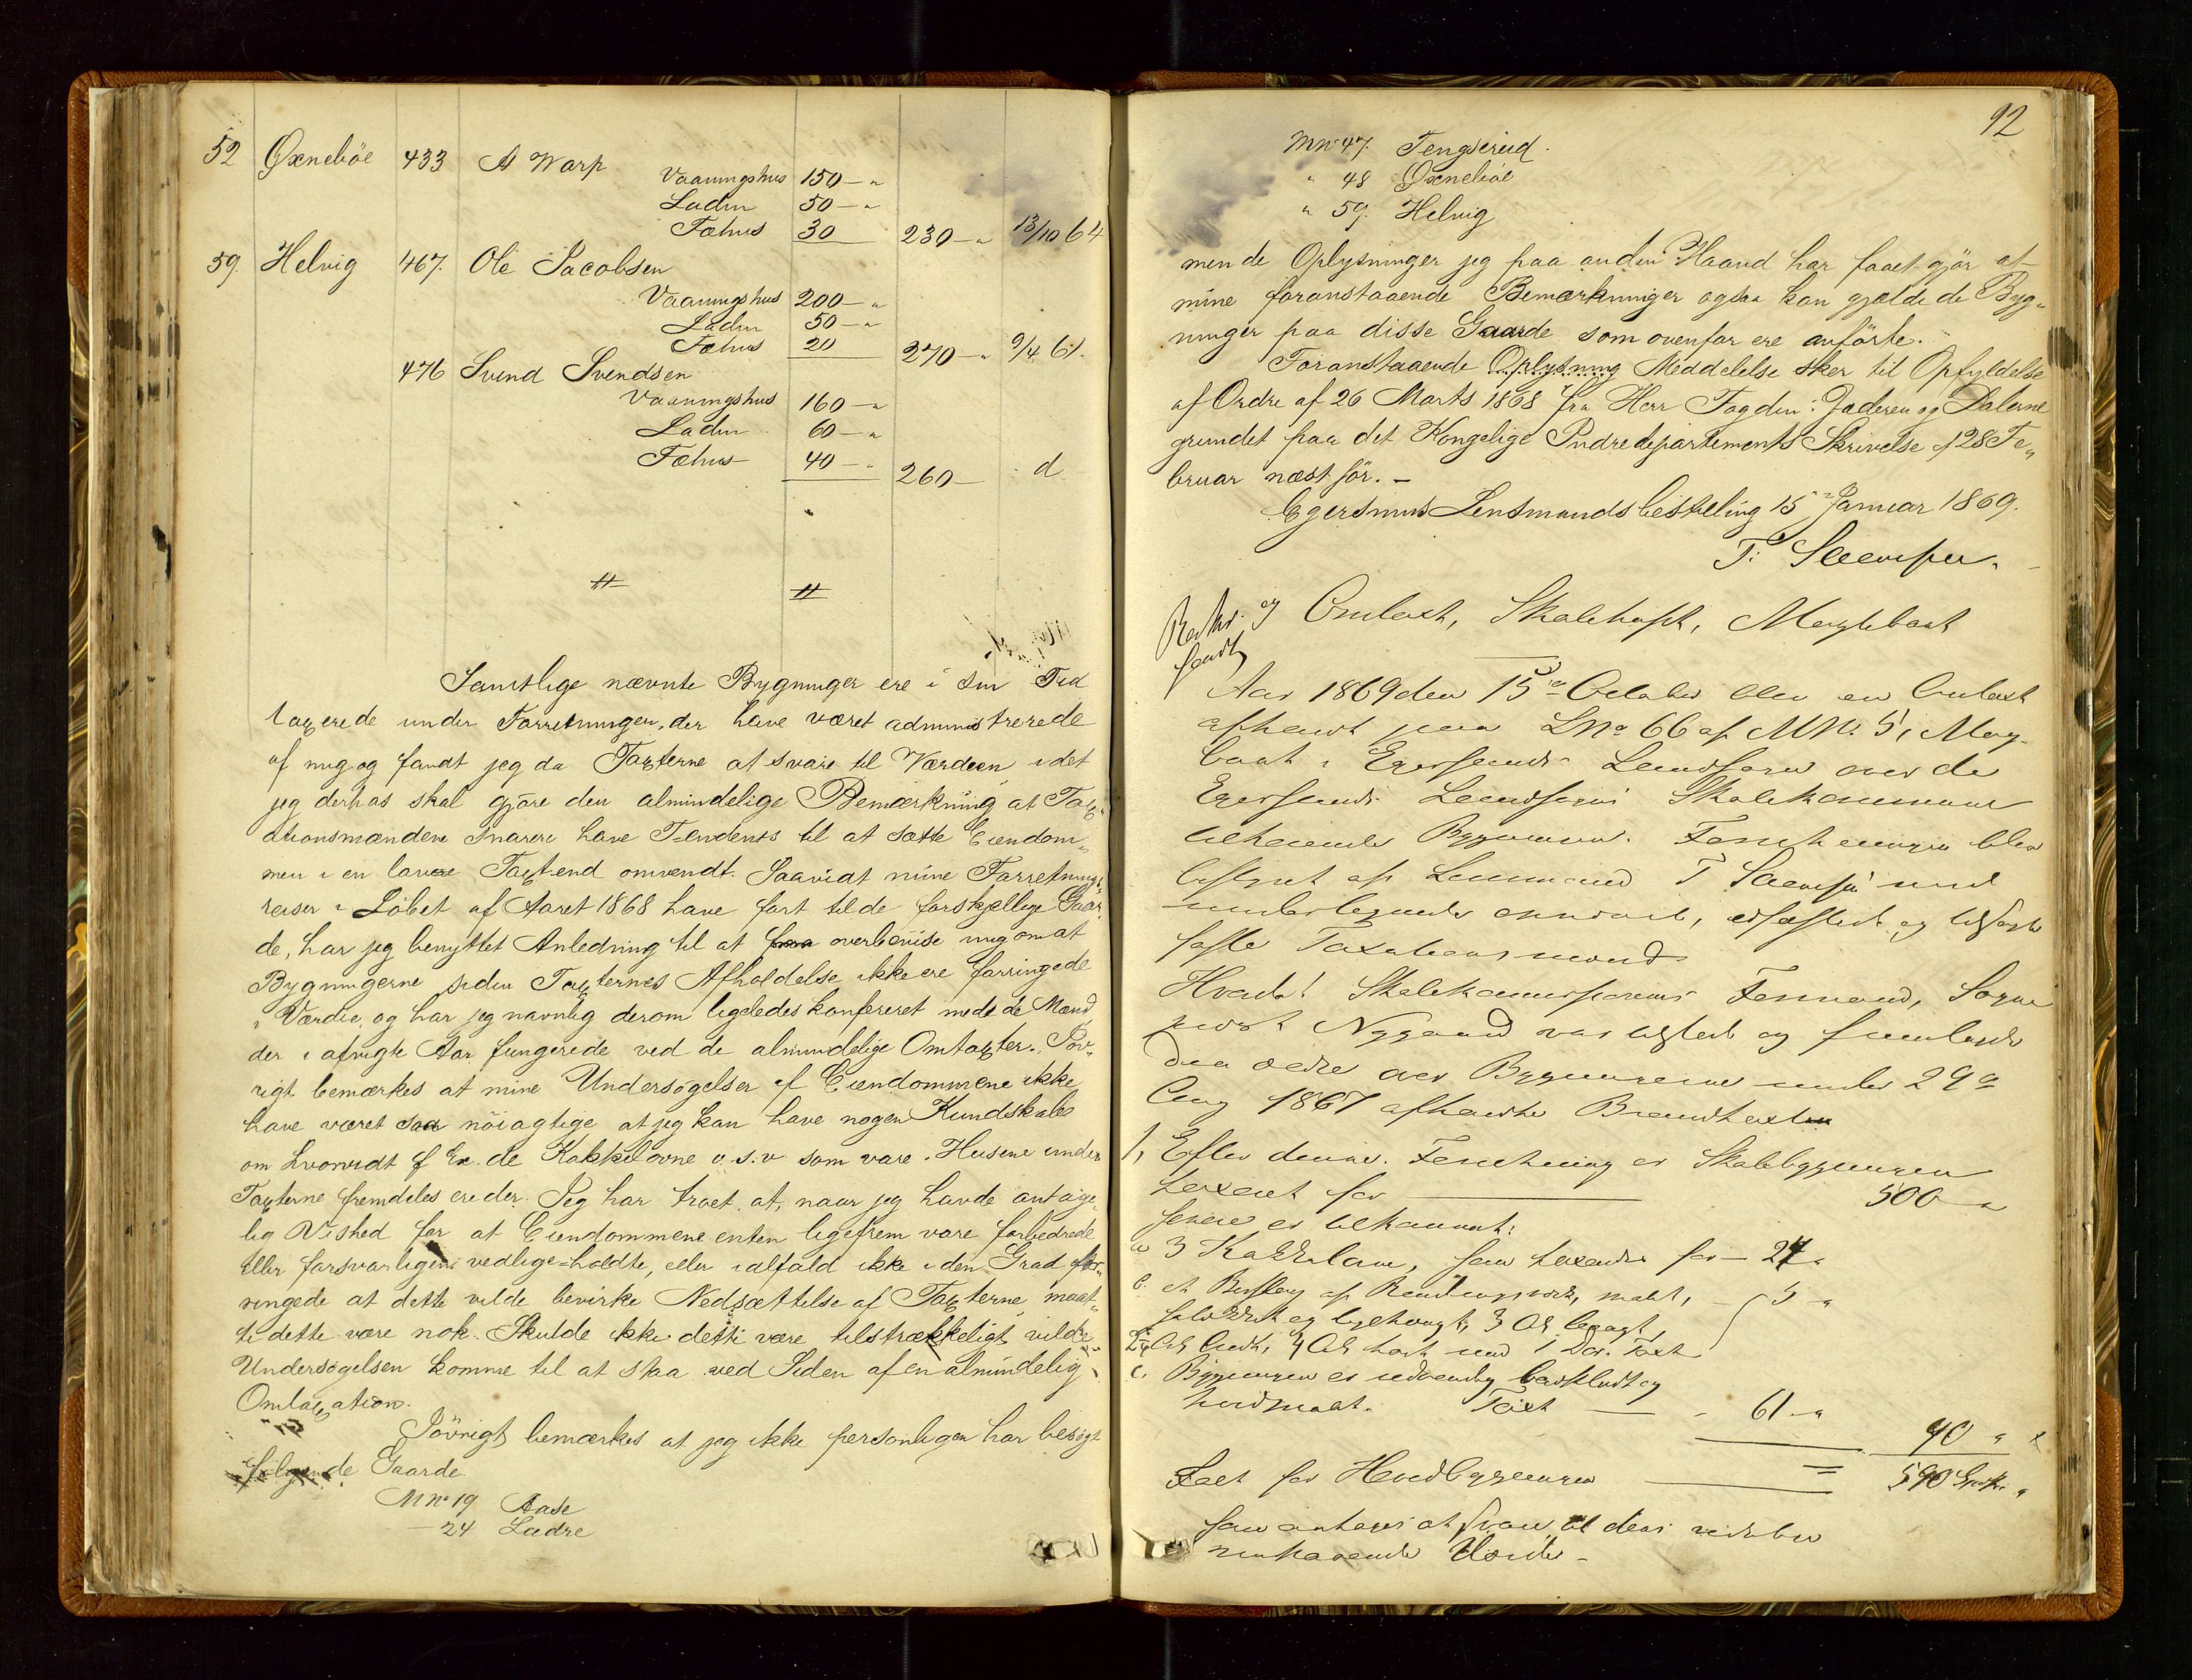 52 Øxneböe 433 A Warp
Vaaningshus 150 — "
Laden 50 — "
Fæhus 30 230 — " 13/10 64
59. Helvig 467. Ole Jacobsen
Vaaningshus 200 — "
Laden 50 — "
Fæhus 20 270 — " 9/4 61.
476 Svend Svendsen
Vaaningshus 160 — "
Laden 60 — "
Fæhus 40 — " 260 — d
Samtlige nævnte Bygninger ere i sin Tid
taxerede under Forretninger, der have været administrerede
af mig og fandt jeg da Taxterne at svare til Værdien, idet
jeg derhos skal gjøre den almindelige Bemærkning at Tax-
ationsmændene snarere have Tendents til at sætte Eiendom-
men i en lavere Taxt end omvendt. Saavidt mine Forretnings-
reiser i Löbet af Aaret 1868 have fört til de forskjellige Gaar-
de, har jeg benyttet Anledning til at overbevise mig om at
Bygningerne siden Taxternes Afholdelse ikke ere forringede
i Værdie, og har jeg navnlig derom ligeledes konfereret med de Mænd
der i afvigte Aar fungerede ved de almindelige Omtaxter. Töv-
rigt bemærkes at mine Undersögelser af Eiendommene ikke
have været saa nöiagtige at jeg kan have nogen Kundskab
om hvorvidt f Ex. de Kakkelovne o.s.v som vare i Husene under
Taxterne fremdeles ere der. Jeg har troet, at, naar jeg havde antage-
lig Vished for at Eiendommene enten ligefrem vare forbedrede
eller forsvarligen vedlige-holdte, eller i alfald ikke i den Grad for-
ringede at dette vilde bevirke Nedsættelse af Taxterne, maat-
te dette være nok. Skulde ikke dette være tilstrækkeligt, vilde
Undersögelsen komme til at staa ved Siden af en almindelig
Omtaxation.
Jövrigt bemærkes at jeg ikke personligen har besögt
fölgende Gaarde
MNo 19 Aase
— 24 Ladre
92
MNo 47. Tengsereid.
" 48 Øxneböe
" 59. Helvig
men de Oplysninger jeg paa anden Haand har faaet gjör at
mine foranstaaende Bemærkninger ogsaa kan gjælde de Byg-
ninger paa disse Gaarde som ovenfor ere anförte.
Foranstaaende Oplysning Meddelelse sker til Opfyldelse
af Ordre af 26 Marts 1868 fra Herr Fogden i Jæderen og Dalerne
grundet paa det Kongelige Indredepartements Skrivelse af 28 Fe-
bruar næst för. —
Egersunds Lensmandsbestilling 15 Januar 1869.
T:
og Omtaxt, Skolehuset,
Aar 1869 den 15de October blev en Omtaxt
afholdt paa LNo 66 af MNo 5,
i Egersunds Landsogn over de
Egersunds Landsogns Skolekommune
tilhørende Bygninger. Forretningen blev
bestyret af Lensmand T med
undertegnede opnævnte, edfæstede og tilforn
faste Taxationsmænd
Hvorda! Skolekommissionens Formand, Sogne
præst Nygaard var tilstede og fremlagde
den ældre over Bygningerne under 29de
Aug 1867 afholdte Brandtaxt
1, Efter denne Forretning er Skolebygningen
taxeret for — 500 "
senere er tilkommet:
a 3 Kakkelovne, som taxeredes for — 24 "
b. et af malet, — 5 "
3 Al
4 Al 1 Dør. Taxt
c. Bygningen er udvendig bordklædt og
hvidmalet. Taxt — 61 "
90 "
Taxt for Hovedbygningen — 590 "
som antages at svare til dens
nuhavende Værdi —